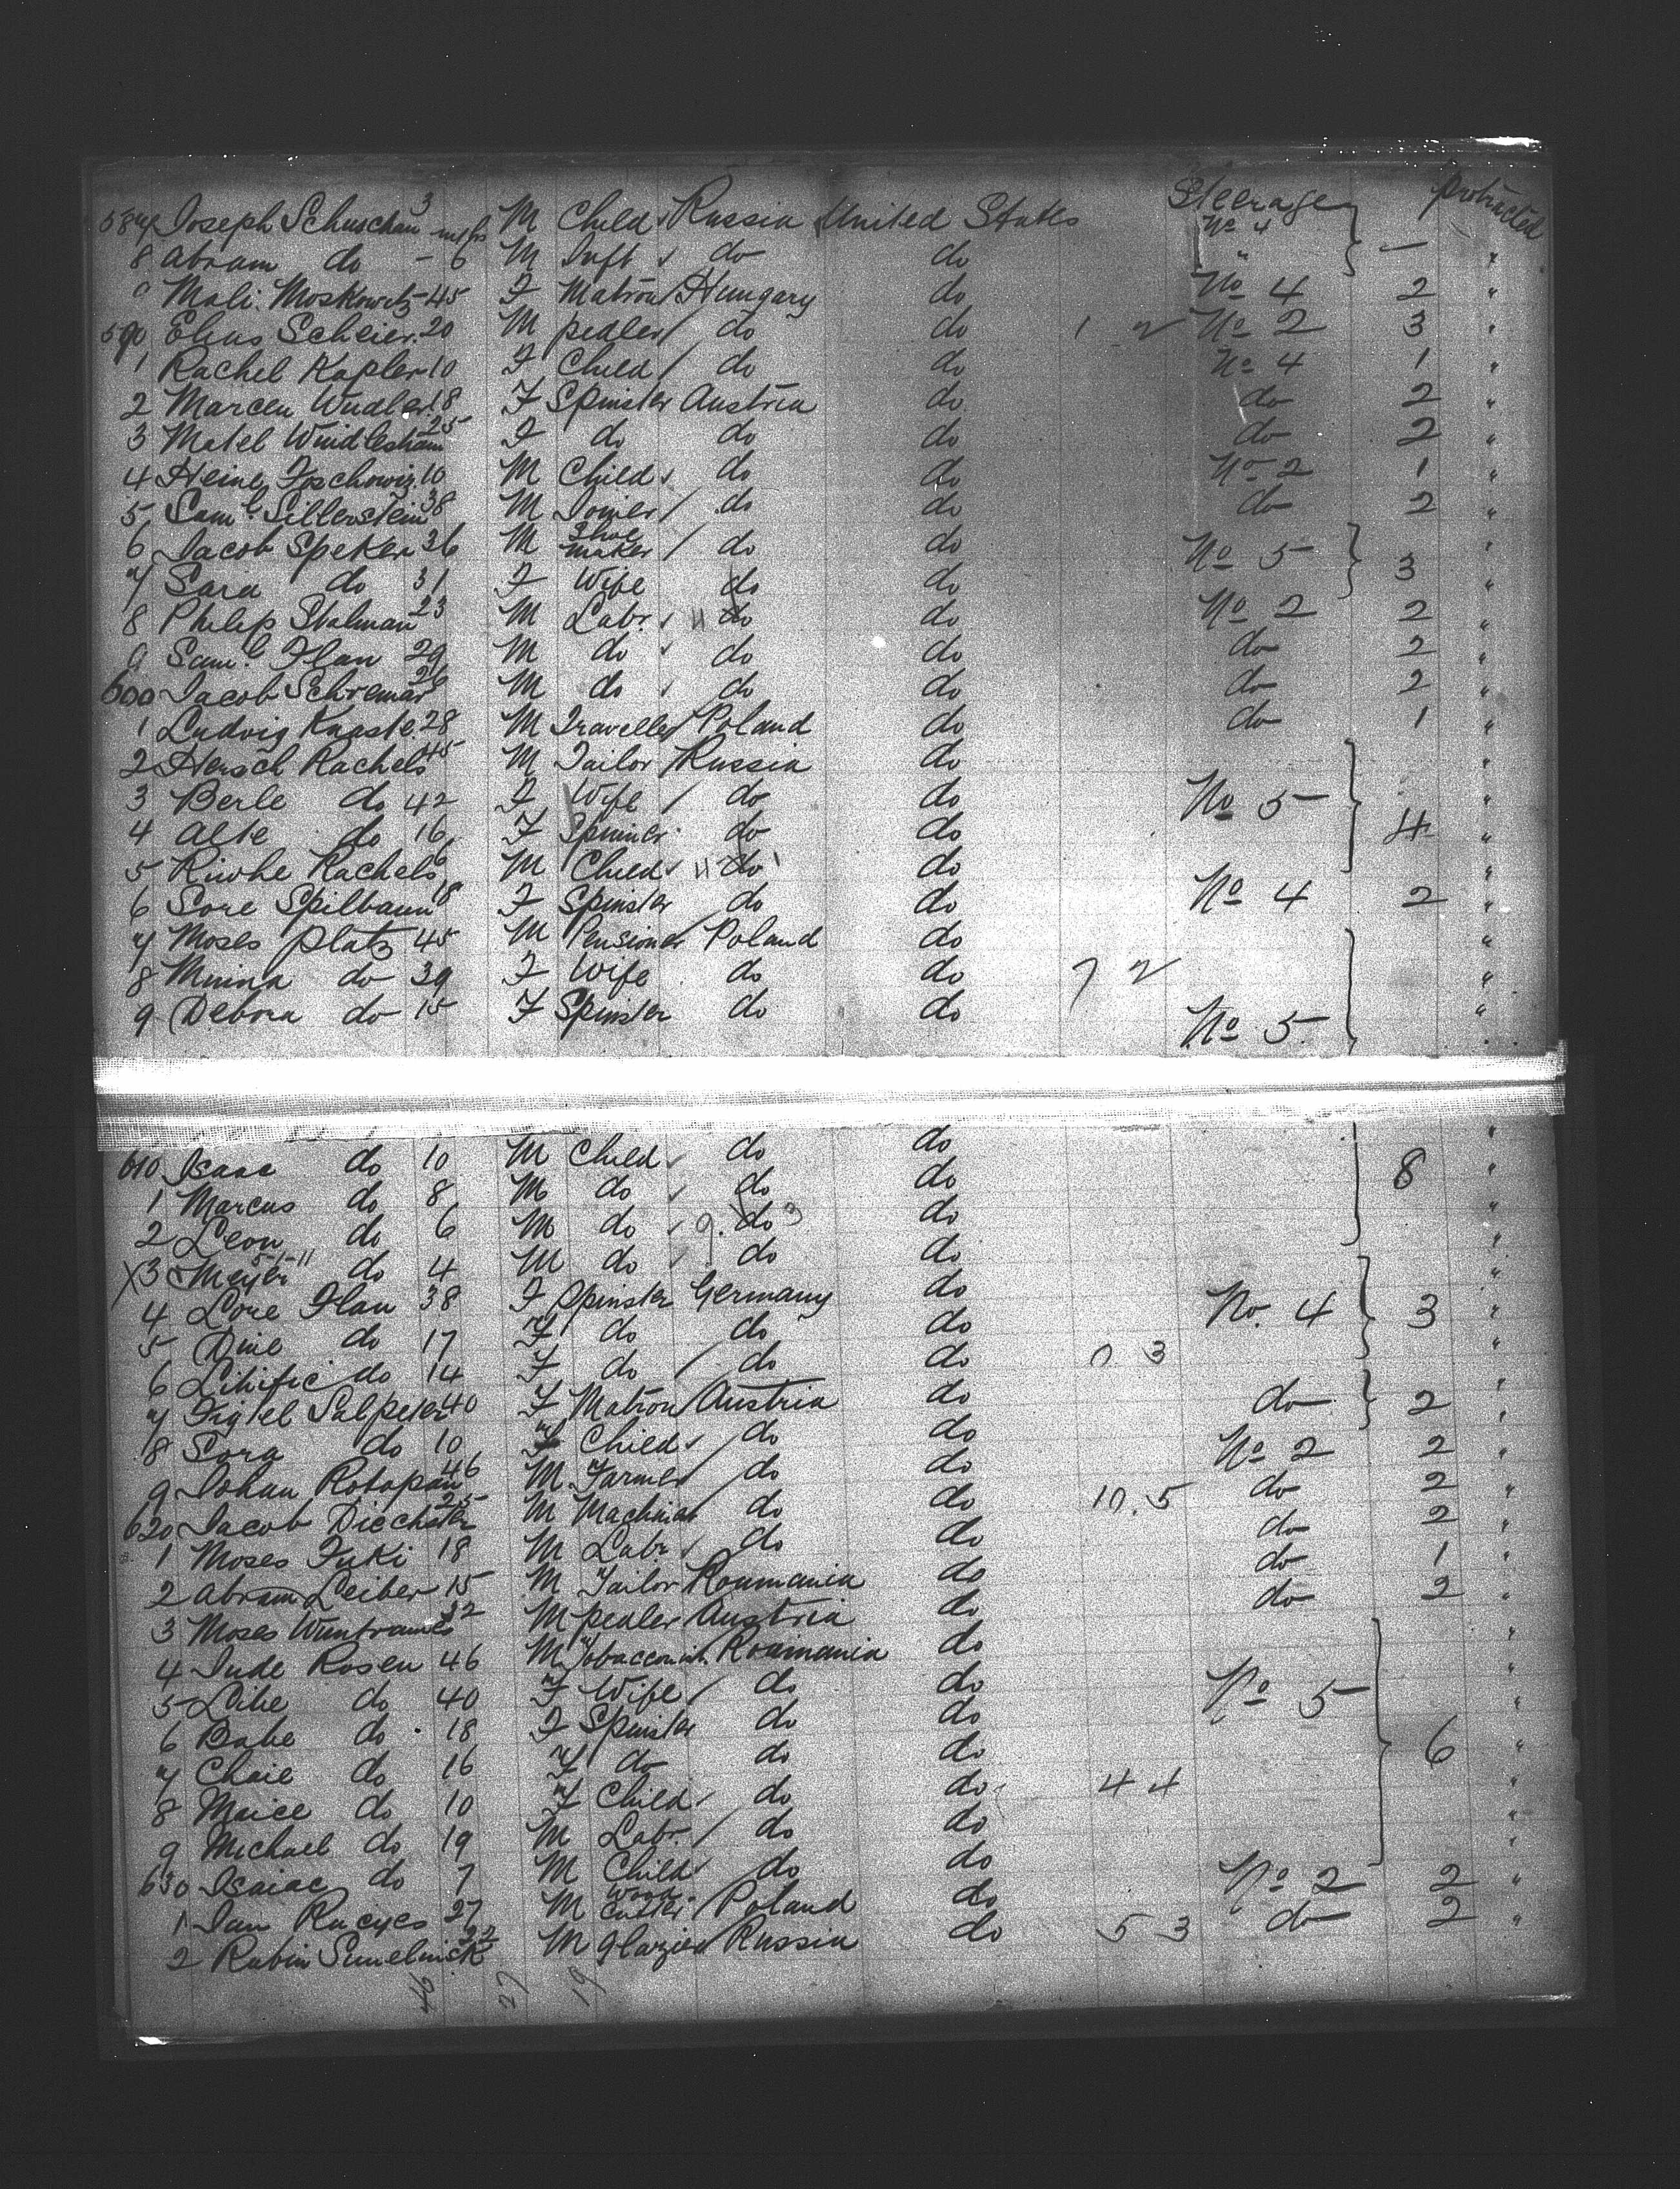 587 Joseph Schuschan 3 M Child Russia United States Steerage No 4 protracted
8 Abram do - 6 M Inft do do " — "
9 Mali Moskowitz 45 F Matron Hungary do No 4 2 "
590 Elias Scheier 20 M pedler do do 1 2 No 2 3 "
1 Rachel Kapler 10 F Child do do No 4 1 "
2 Marcen Wudler 18 F Spinster Austria do do 2 "
3 Matel Windlesham 25 F do do do do 2 "
4 Heine Foschowiz 10 M Child do do No 2 1 "
5 Saml Sillerstein 38 M Joiner do do do 2 "
6 Jacob Speker 36 M Shoe maker do do No 5 3 "
7 Sara do 31 F Wife do do "
8 Philip Stalman 23 M Labr do do No 2 2 "
9 Saml Flan 29 M do do do do 2 "
600 Jacob Schremar M do do do do 2 "
1 Ludvig Knaste 28 M Traveller Poland do do 1 "
2 Hersch Rachels 45 M Tailor Russia do "
3 Berle do 42 F Wife do do No 5 4 "
4 Alte do 16 F Spinner do do "
5 Riwhe Rachels 6 M Child do do "
6 Sore Spilbaum 18 F Spinster do do No 4 2 "
7 Moses Platz 45 M Pensioner Poland do "
8 Minna do 39 F Wife do do 7 2 "
9 Debora do 15 F Spinster do do No 5 "
610 Isaac do 10 M Child do do 8 "
1 Marcus do 8 M do do do "
2 Leon do 6 M do do do "
X 3 Meyer do 4 M do do do "
4 Lone Flan 38 F Spinster Germany do No. 4 3 "
5 Dine do 17 F do do do "
6 do 14 F do do do 0 3 "
7 Figtel Salpeter 40 F Matron Austria do do 2 "
8 Sora do 10 F Child do do "
9 Johan Rotopan 46 M Farmer do do No 2 2 "
620 Jacob Diechster 25 M Machinist do do 10. 5 do 2 "
1 Moses Fuki 18 M Labr do do do 2 "
2 Abram Leiber 15 M Tailor Roumania do do 1 "
3 Moses 32 M pedler Austria do do 2 "
4 Jude Rosen 46 M Tobacconist Roumania do "
5 Libe do 40 F Wife do do No 5 6 "
6 Babe do 18 F Spinster do do "
7 Chaie do 16 F do do do "
8 Maice do 10 F Child do do 4 4 "
9 Michael do 19 M Labr. do do "
630 Isaiac do 7 M Child do do "
1 Jan Racyes 27 M Wood Cutter Poland do No 2 2 "
2 Rubin Simelnick 22 M glazier Russia do 5 3 do 2 "